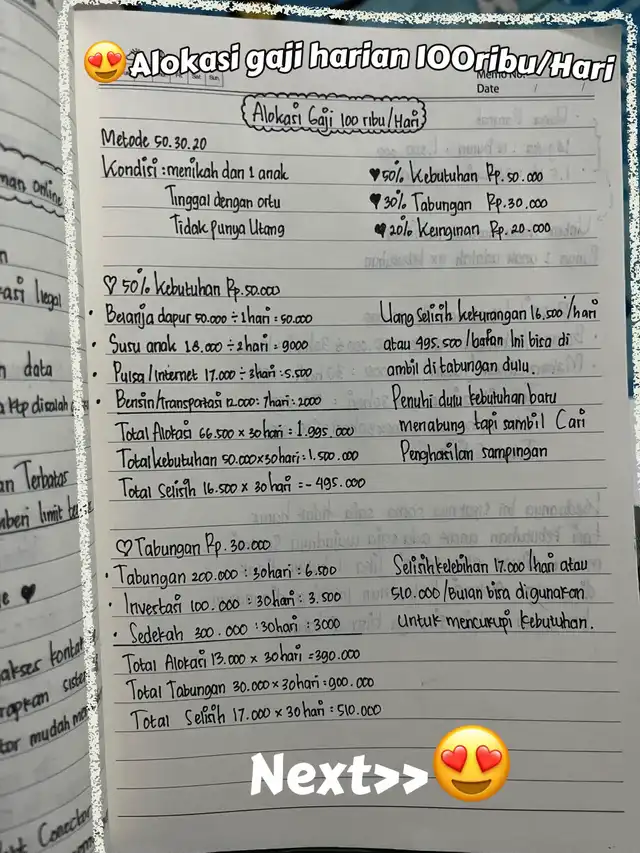 😍Alokasi gaji harian 100ribu/Hari
Memo No.
Date / /
Alokasi Gaji 100 ribu/Hari
Metode 50.30.20
Kondisi : menikah dan 1 anak
Tinggal dengan ortu
Tidak punya Utang
♥50% Kebutuhan Rp. 50.000
♥30% Tabungan Rp. 30.000
♥20% Keinginan Rp. 20.000
♡ 50% Kebutuhan Rp. 50.000
• Belanja dapur 50.000 ÷ 1 hari : 50.000
• Susu anak 18.000 ÷ 2 hari : 9000
• Pulsa/Internet 17.000 ÷ 3 hari : 5.500
• Bensin/transportasi 12.000 : 7 hari : 2000
Total Alokasi 66.500 x 30 hari : 1.995.000
Total kebutuhan 50.000 x 30 hari : 1.500.000
Total Selisih 16.500 x 30 hari = - 495.000
Uang Selisih kekurangan 16.500/hari
atau 495.500/bulan Ini bisa di
ambil di tabungan dulu.
Penuhi dulu kebutuhan baru
menabung tapi sambil Cari
Penghasilan sampingan
♡ Tabungan Rp. 30.000
• Tabungan 200.000 : 30 hari : 6.500
• Investasi 100.000 : 30 hari : 3.500
• Sedekah 300.000 : 30 hari : 3000
Total Alokasi 13.000 x 30 hari = 390.000
Total Tabungan 30.000 x 30 hari = 900.000
Total Selisih 17.000 x 30 hari : 510.000
Selisih kelebihan 17.000/hari atau
510.000/Bulan bisa digunakan
Untuk mencukupi kebutuhan.
Next>>😍
man online
data
Ktp disalah
Terbatas
mberi limit
akses kontak
mudah